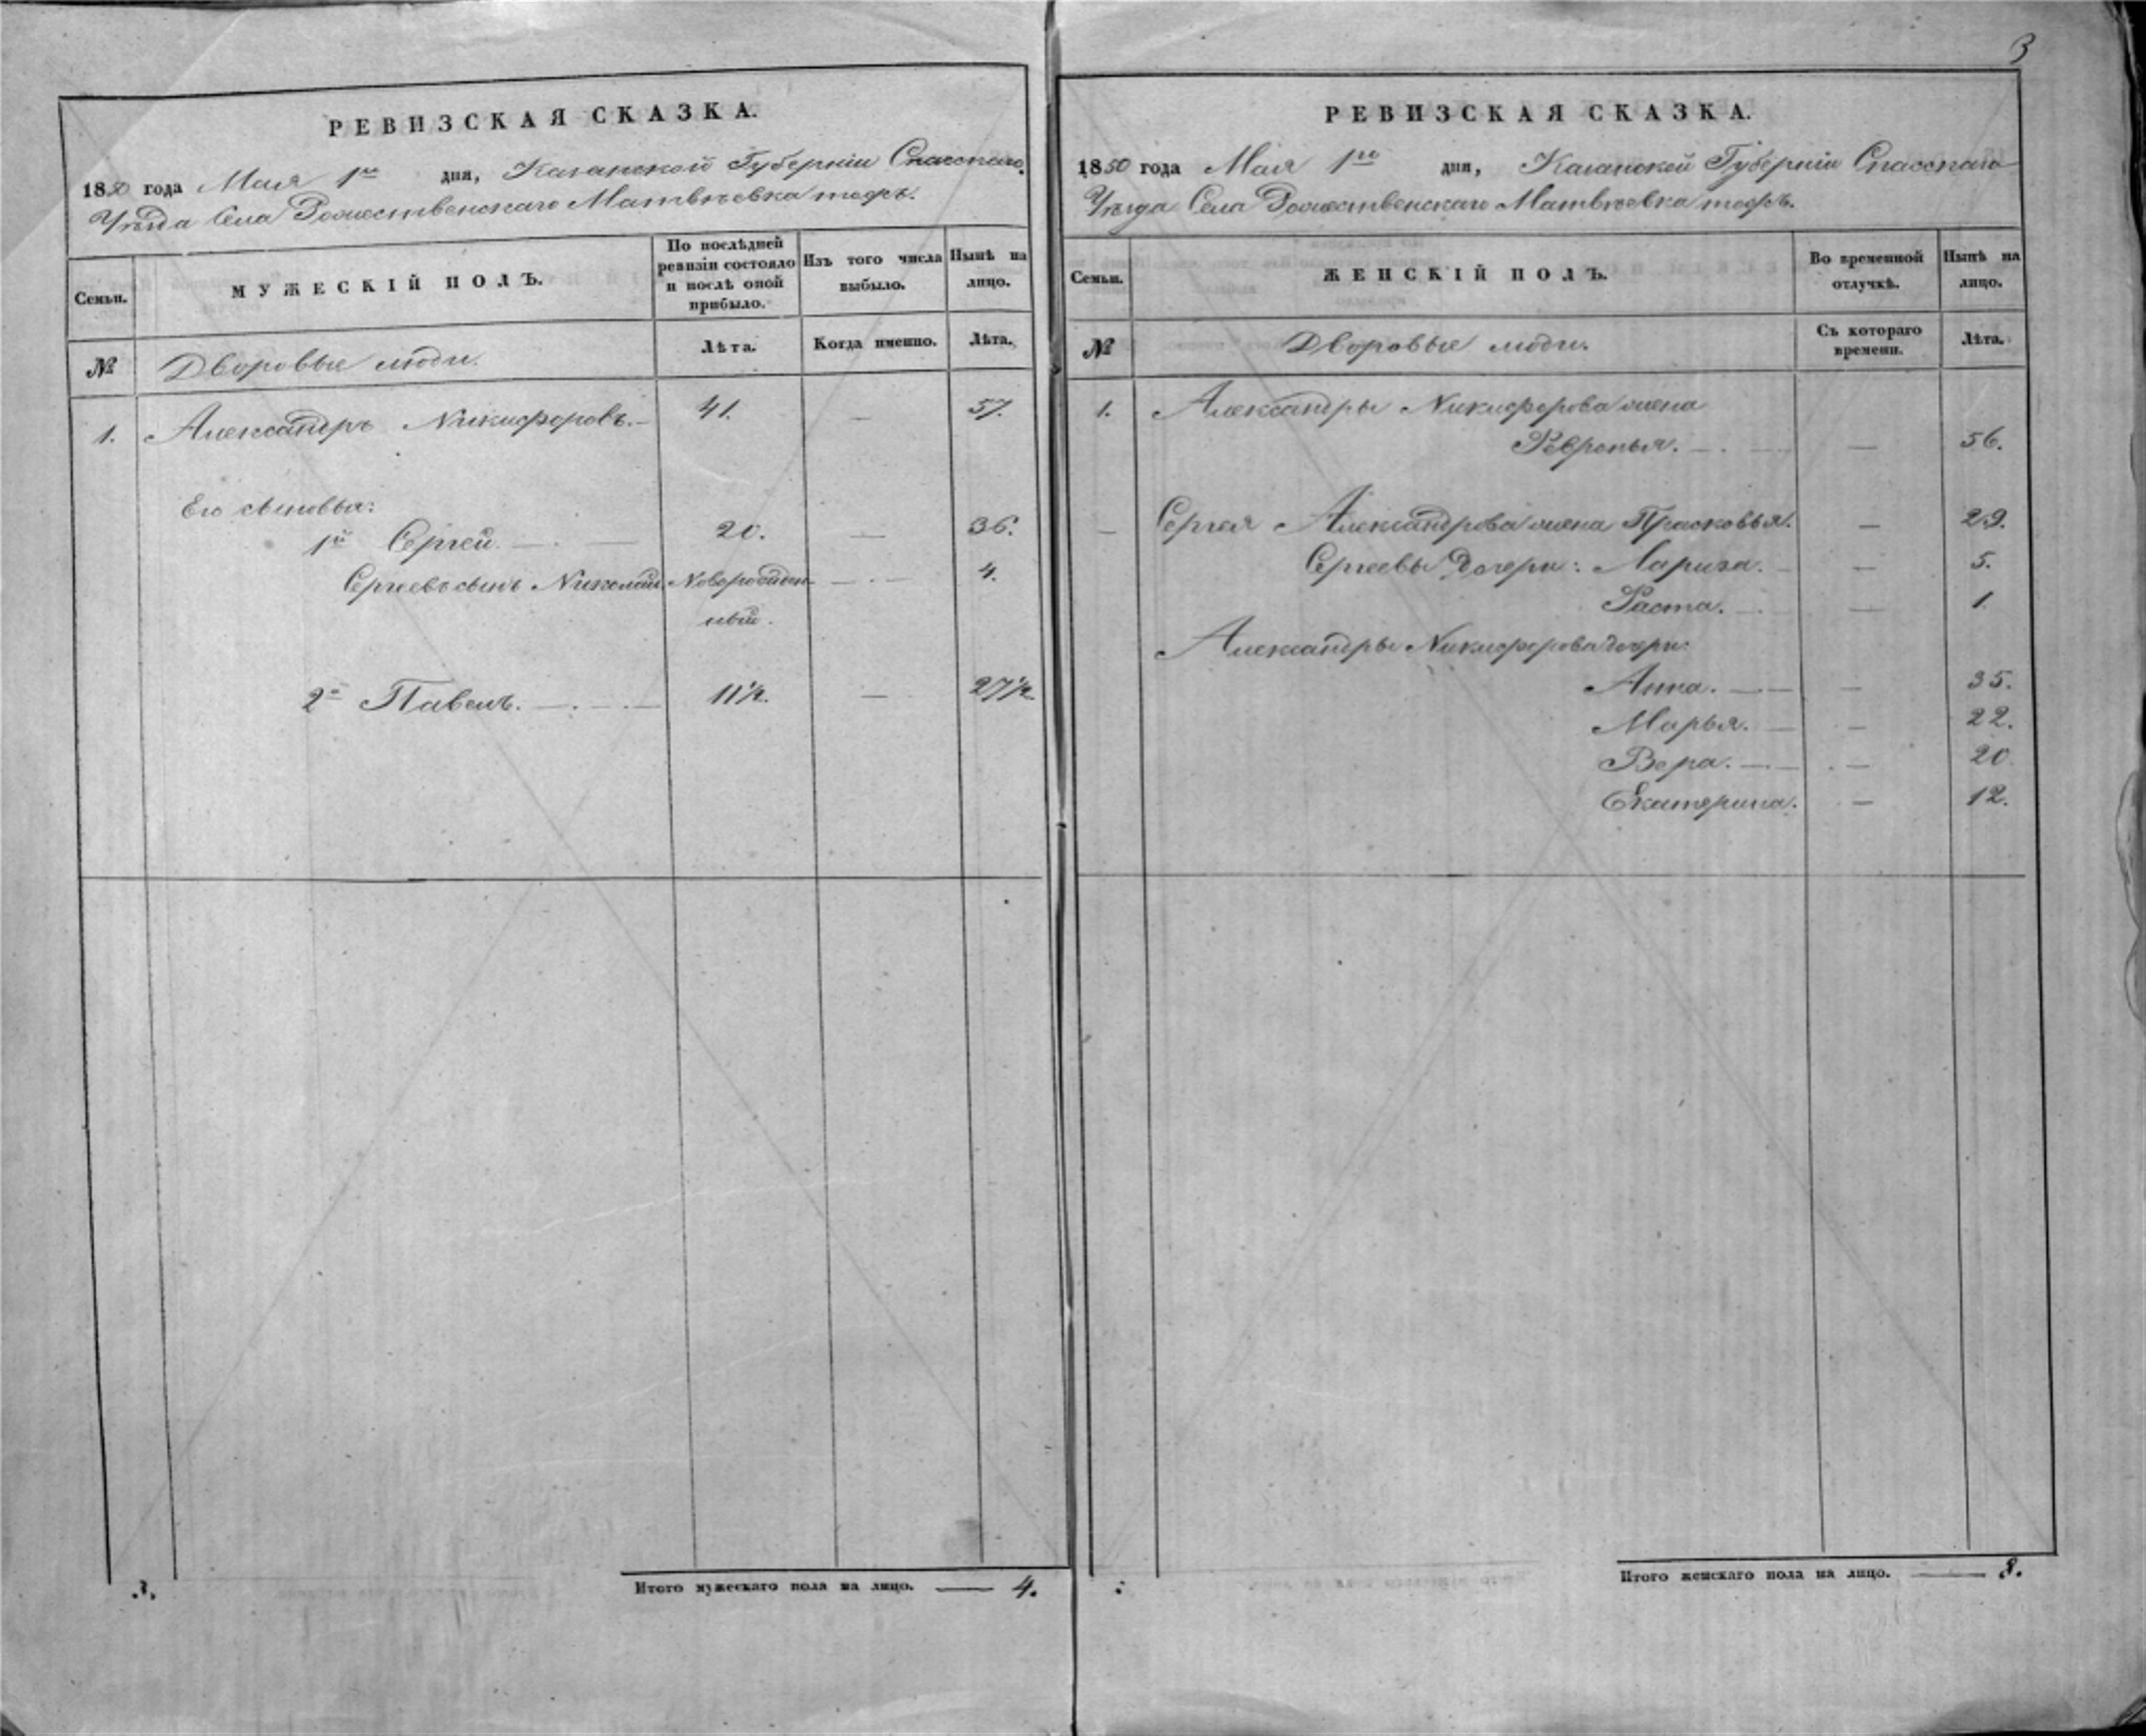 3
РЕВИЗСКАЯ СКАЗКА.
1850 года Мая 1го дня, Казанской Губернiи Спасскаго
Уѣзда Села Рожественскаго Матвѣевка тожъ.
Семьи.
МУЖЕСКІЙ ПОЛЪ.
По послѣдней ревизіи состояло и послѣ оной прибыло.
Изъ того числа выбыло.
Нынѣ на лицо.
№
Дворовые люди.
Лѣта.
Когда именно.
Лѣта.
1. Александръ Никифоровъ. 41. — 57.
Его сыновья:
1й Сергей. 20. — 36.
Сергеевъ сынъ Николай. Новорожден- — 4.
ный.
2й Павелъ. 11½. — 27½.
Итого мужескаго пола на лицо. — 4.
РЕВИЗСКАЯ СКАЗКА.
1850 года Мая 1го дня, Казанской Губернiи Спасскаго
Уѣзда Села Рожественскаго Матвѣевка тожъ.
Семьи.
ЖЕНСКІЙ ПОЛЪ.
Во временной отлучкѣ.
Нынѣ на лицо.
№
Дворовые люди.
Съ котораго времени.
Лѣта.
1. Александры Никифорова жена
Февронья. — 56.
— Сергея Александрова жена Прасковья. — 29.
Сергеевы дочери: Лариза. — 5.
Фаста. — 1.
Александры Никифорова дочери:
Анна. — 35.
Марья. — 22.
Вера. — 20
Екатерина. — 12.
Итого женскаго пола на лицо. — 8.